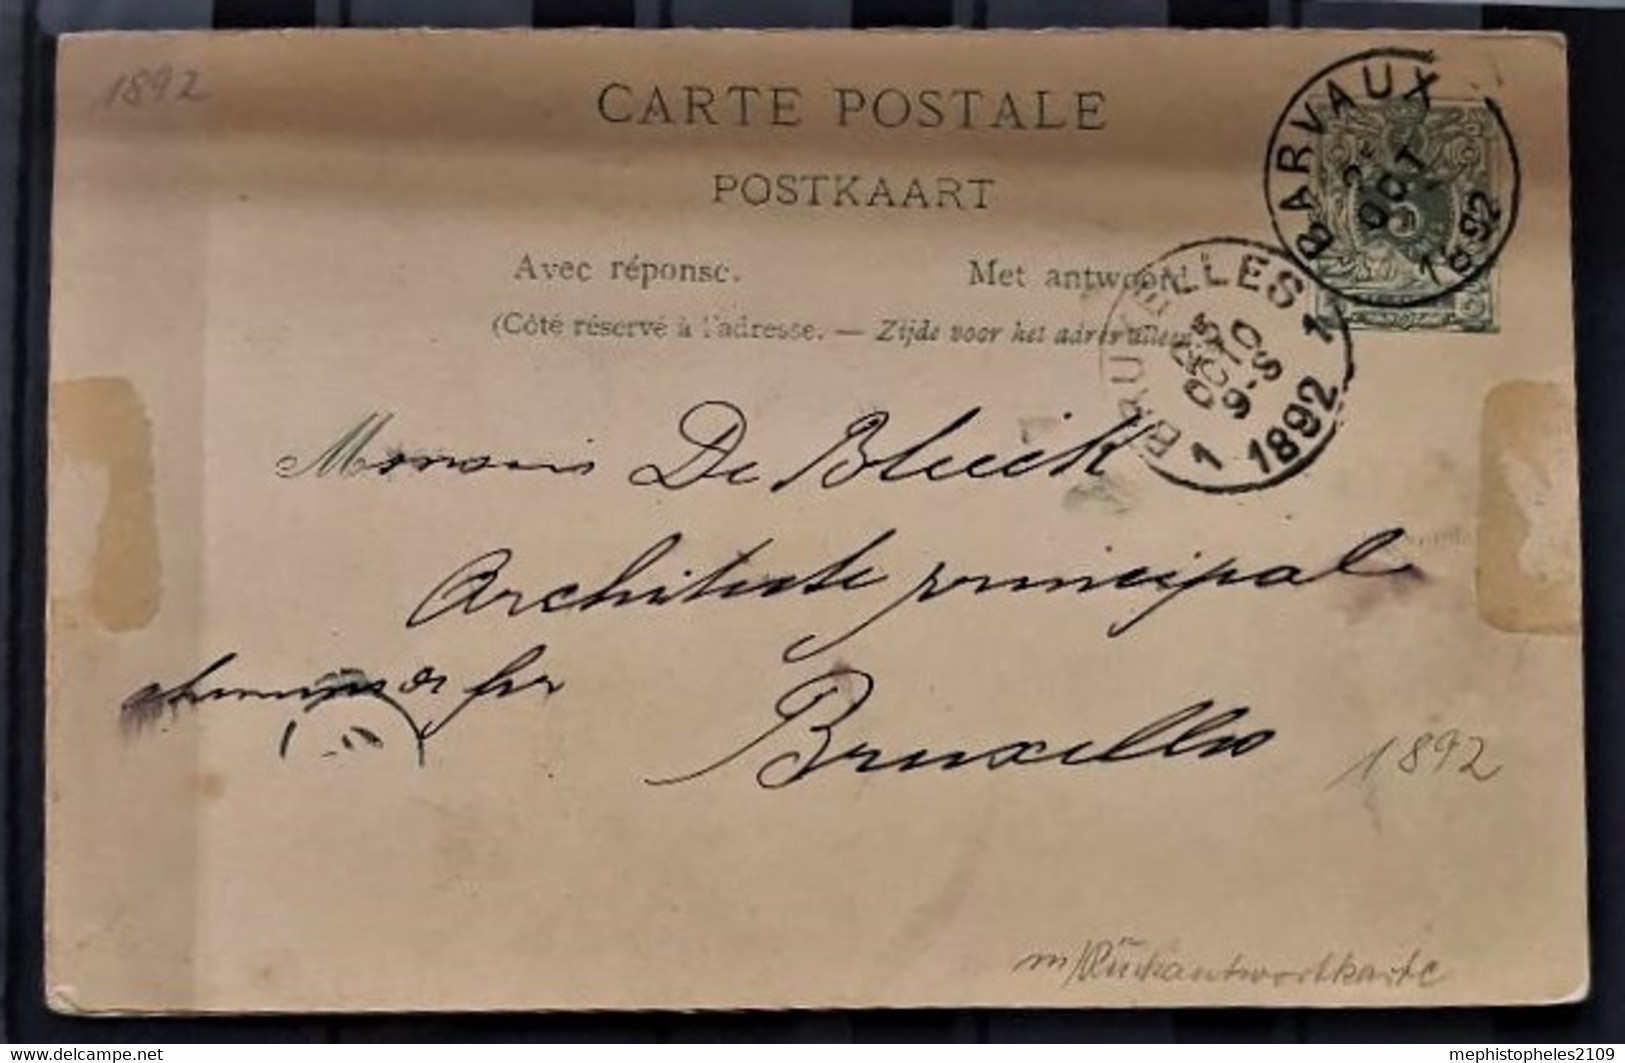 1892
CARTE POSTALE
POSTKAART
Avec réponse. Met antwoord.
(Côté réservé à l'adresse. — Zijde voor het adres alleen
BARVAUX
OCT
1892
5
BRUXELLES 1
OCT
9-S
1 1892
Monsieur De Bluck
Architecte principal
chemins de fer
Bruxelles
1892
m/Rückantwortkarte
delcampe.net
mephistopheles2109